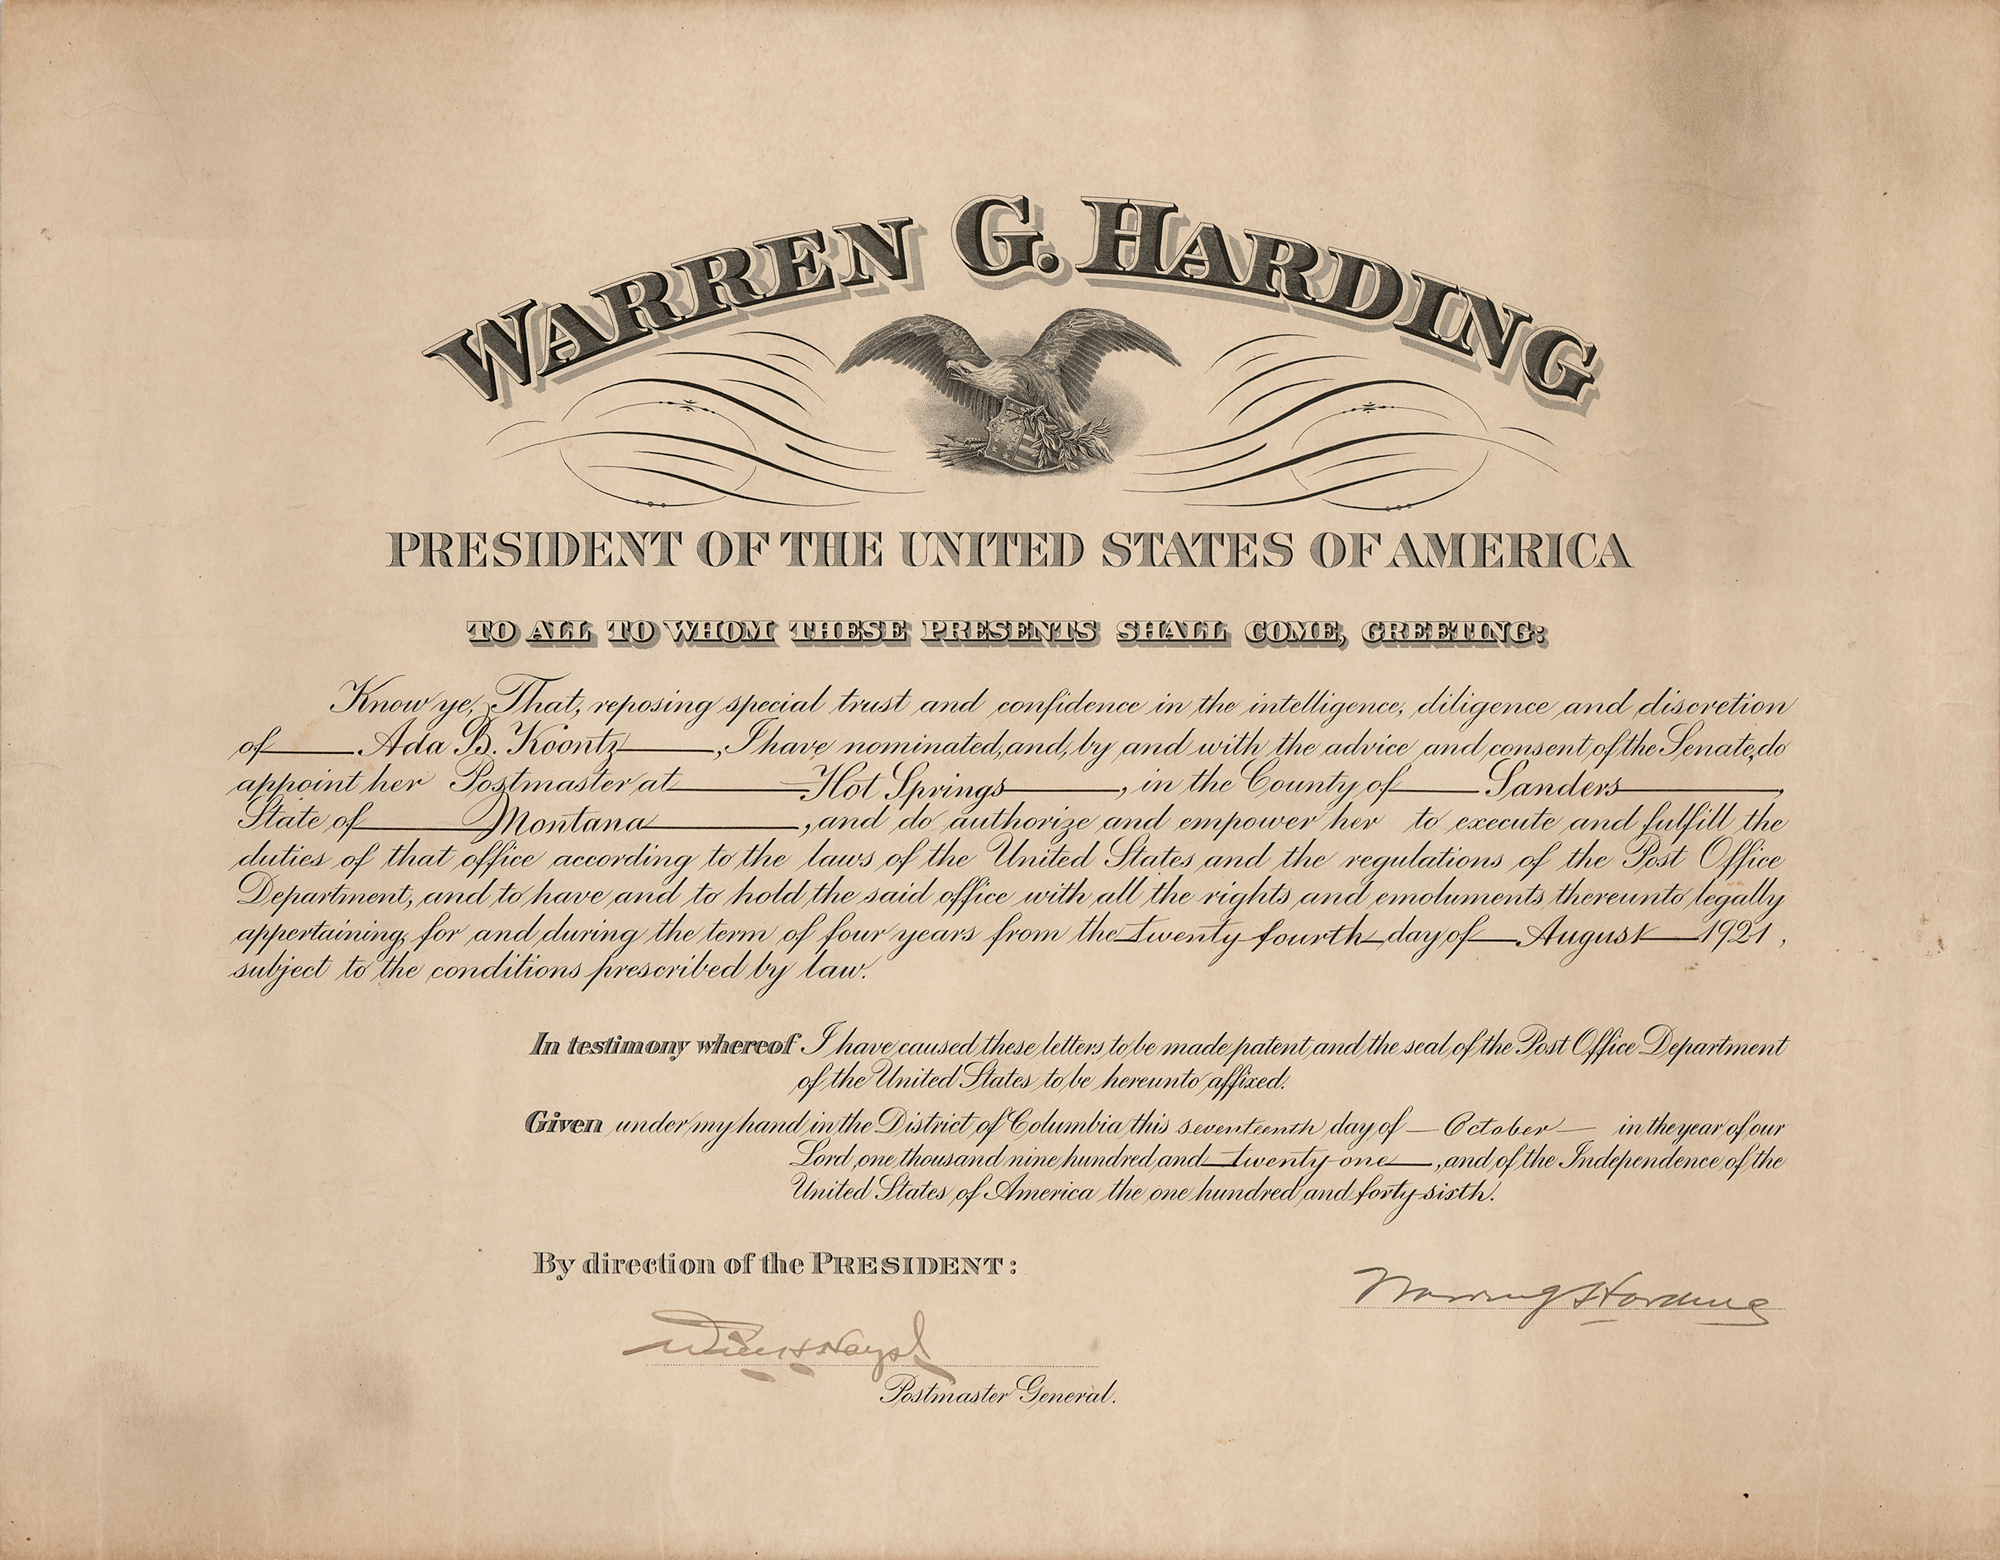 WARREN G. HARDING
PRESIDENT OF THE UNITED STATES OF AMERICA
TO ALL TO WHOM THESE PRESENTS SHALL COME, GREETING:
Know ye, That, reposing special trust and confidence in the intelligence, diligence and discretion
of Ada B. Koontz, I have nominated, and, by and with the advice and consent of the Senate, do
appoint her Postmaster at Hot Springs, in the County of Sanders,
State of Montana, and do authorize and empower her to execute and fulfill the
duties of that office according to the laws of the United States and the regulations of the Post Office
Department, and to have and to hold the said office with all the rights and emoluments thereunto legally
appertaining, for and during the term of four years from the twenty fourth day of August 1921,
subject to the conditions prescribed by law.
In testimony whereof I have caused these letters to be made patent and the seal of the Post Office Department
of the United States to be hereunto affixed.
Given under my hand in the District of Columbia this seventeenth day of October in the year of our
Lord one thousand nine hundred and twenty-one, and of the Independence of the
United States of America the one hundred and forty-sixth.
By direction of the PRESIDENT:
Warren G Harding
Will H Hays
Postmaster General.